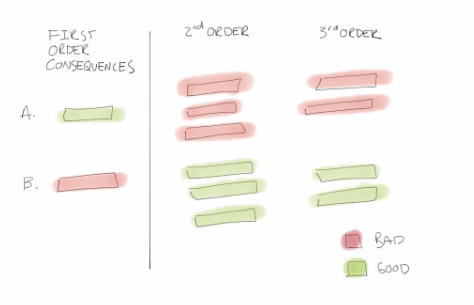 FIRST
ORDER
CONSEQUENCES
2nd ORDER
3rd ORDER
A.
B.
BAD
GOOD